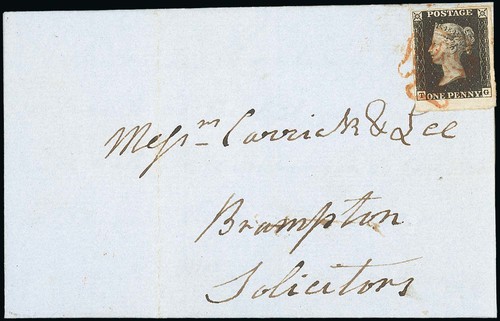 POSTAGE
T G
ONE PENNY
Messrs Carrick & Lee
Brampton
Solicitors